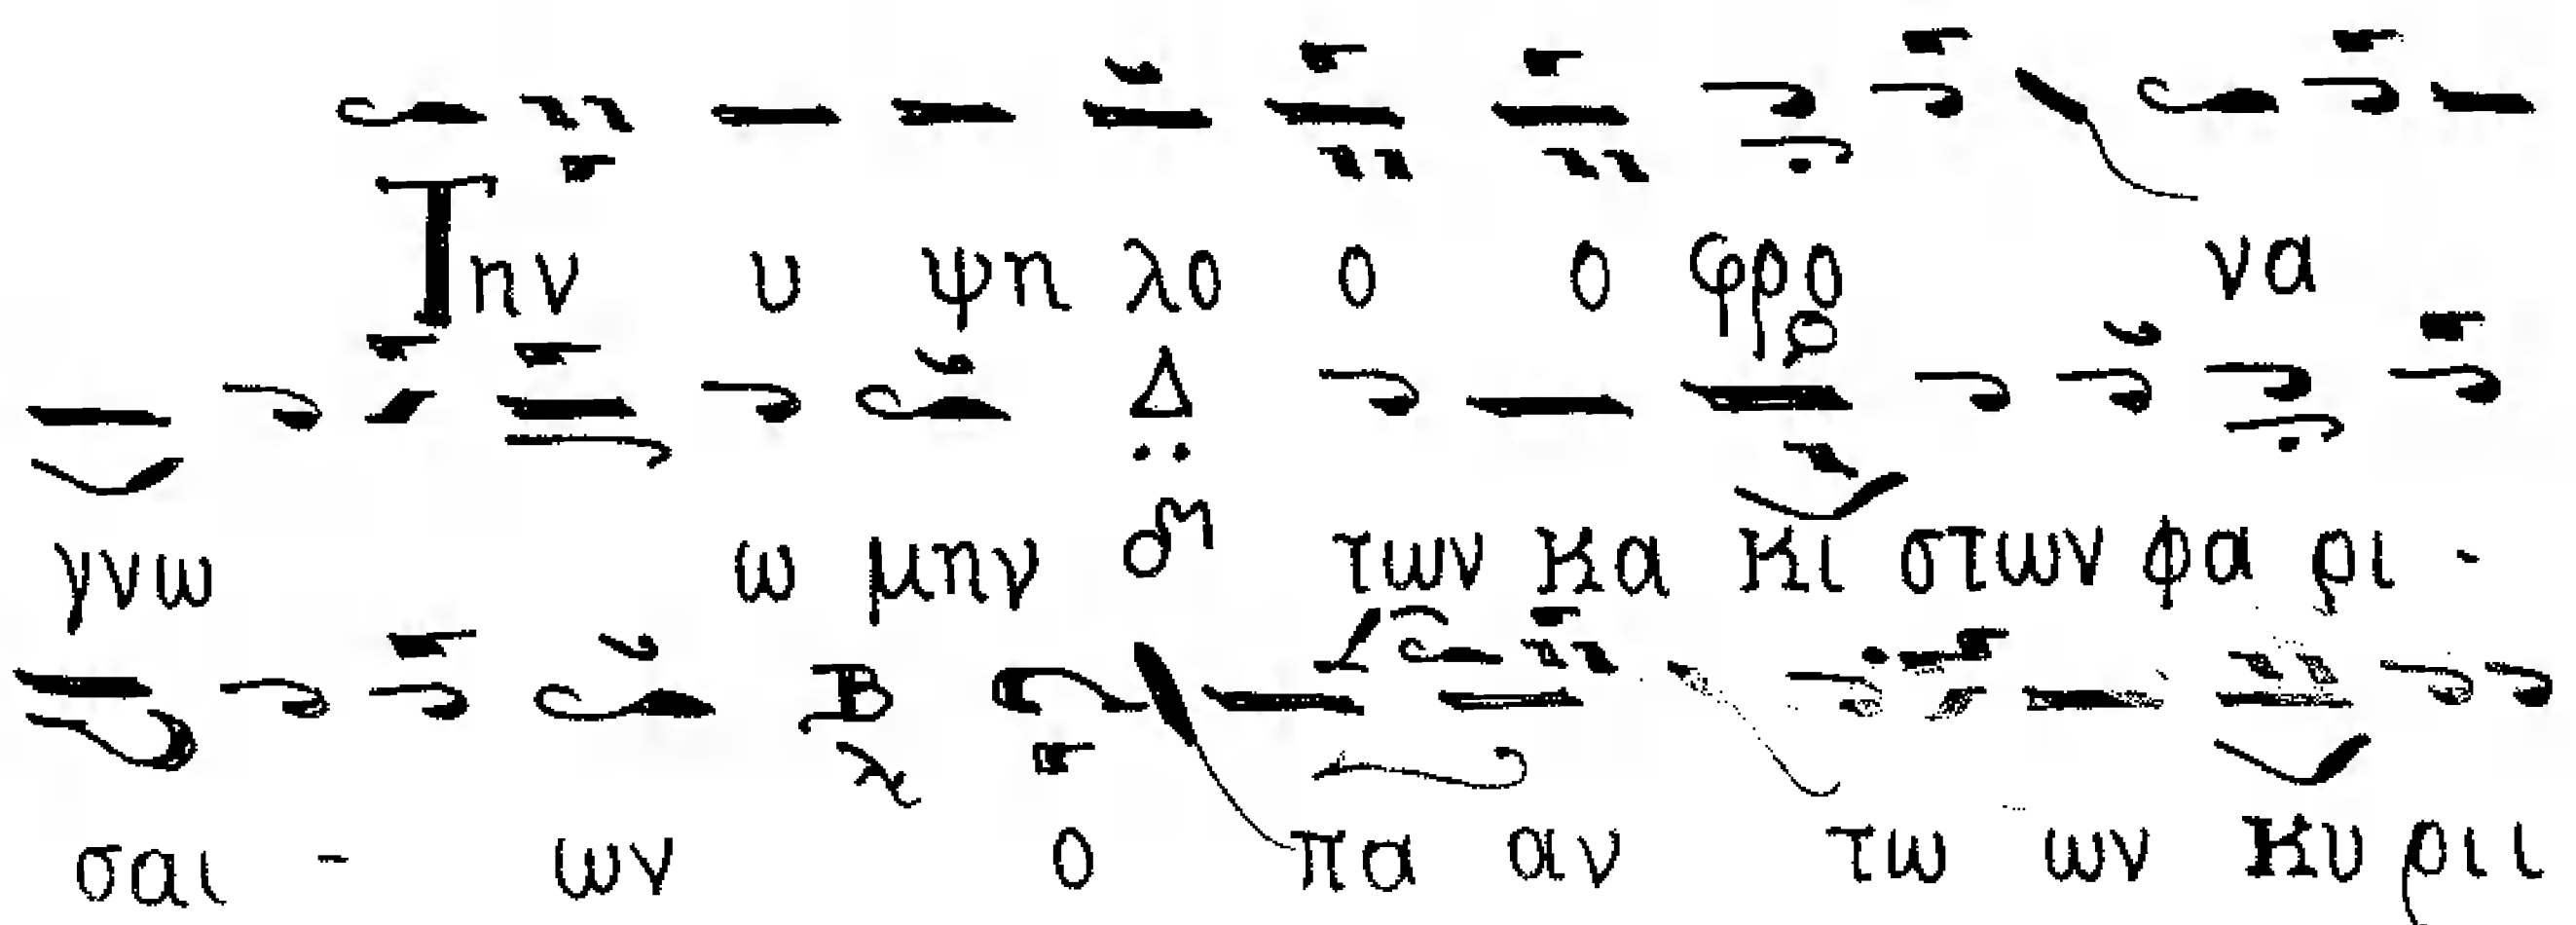 Την υ ψη λο ο ο φρο να
γνω ω μην Δ των κα κι στων φα ρι -
σαι - ων Β ο πα αν τω ων κυ ρι ι